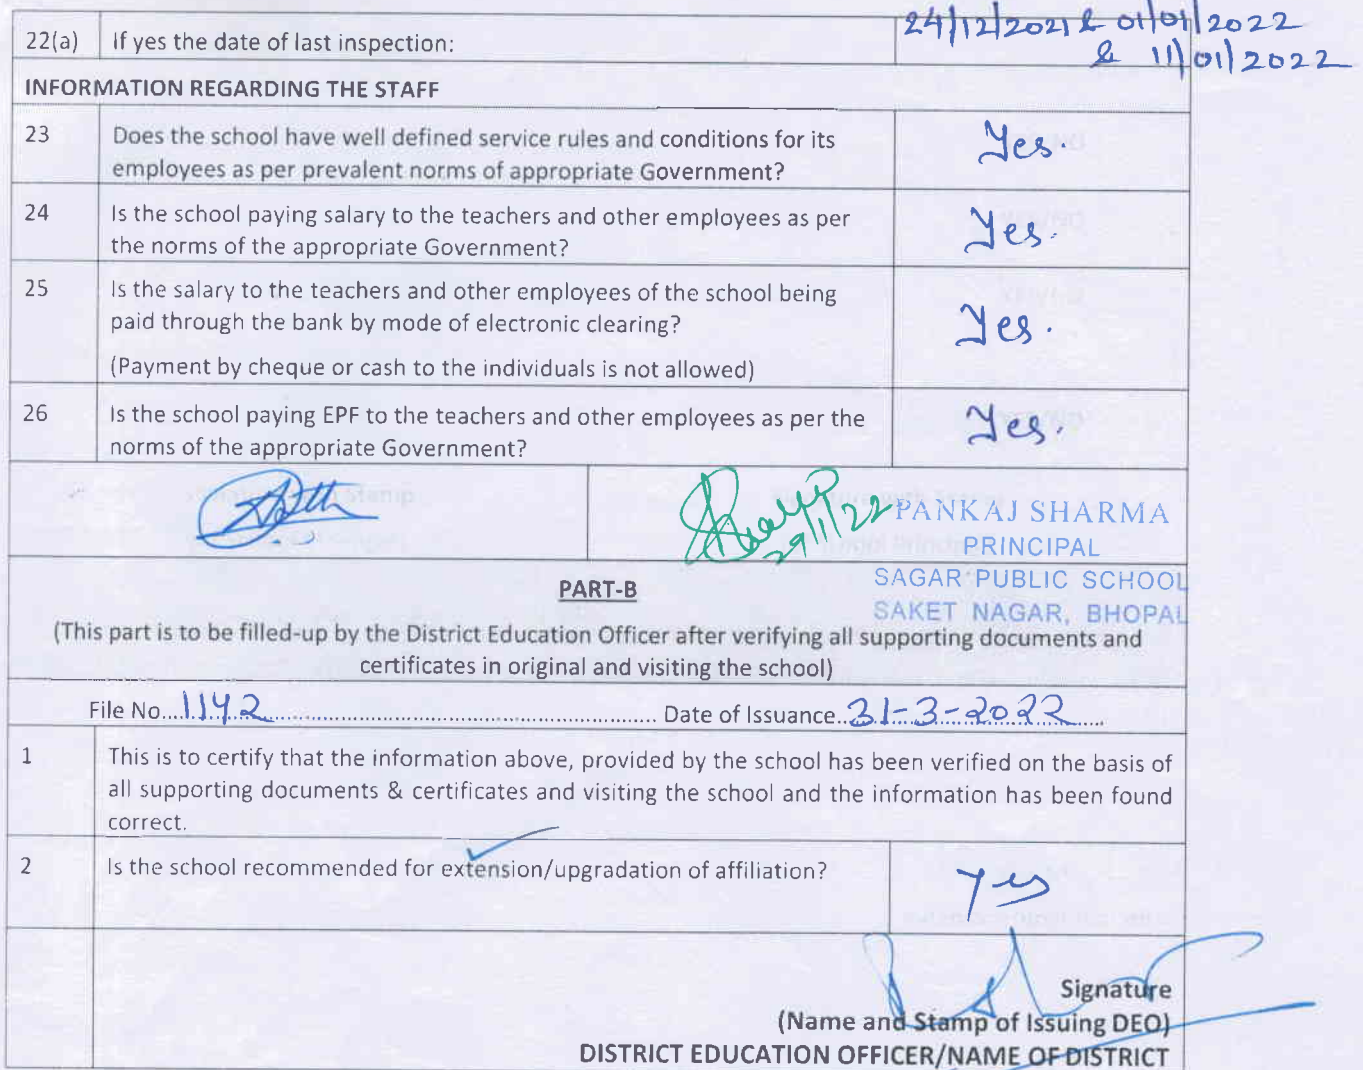 24/12/2021 & 01/01/2022
22(a) If yes the date of last inspection:
& 11/01/2022
INFORMATION REGARDING THE STAFF
23 Does the school have well defined service rules and conditions for its
employees as per prevalent norms of appropriate Government?
Yes.
24 Is the school paying salary to the teachers and other employees as per
the norms of the appropriate Government?
Yes.
25 Is the salary to the teachers and other employees of the school being
paid through the bank by mode of electronic clearing?
(Payment by cheque or cash to the individuals is not allowed)
Yes.
26 Is the school paying EPF to the teachers and other employees as per the
norms of the appropriate Government?
Yes.
29/1/22
PANKAJ SHARMA
PRINCIPAL
SAGAR PUBLIC SCHOOL
SAKET NAGAR, BHOPAL
PART-B
(This part is to be filled-up by the District Education Officer after verifying all supporting documents and
certificates in original and visiting the school)
File No....1142.... Date of Issuance..31-3-2022....
1 This is to certify that the information above, provided by the school has been verified on the basis of
all supporting documents & certificates and visiting the school and the information has been found
correct.
2 Is the school recommended for extension/upgradation of affiliation?
yes
Signature
(Name and Stamp of Issuing DEO)
DISTRICT EDUCATION OFFICER/NAME OF DISTRICT